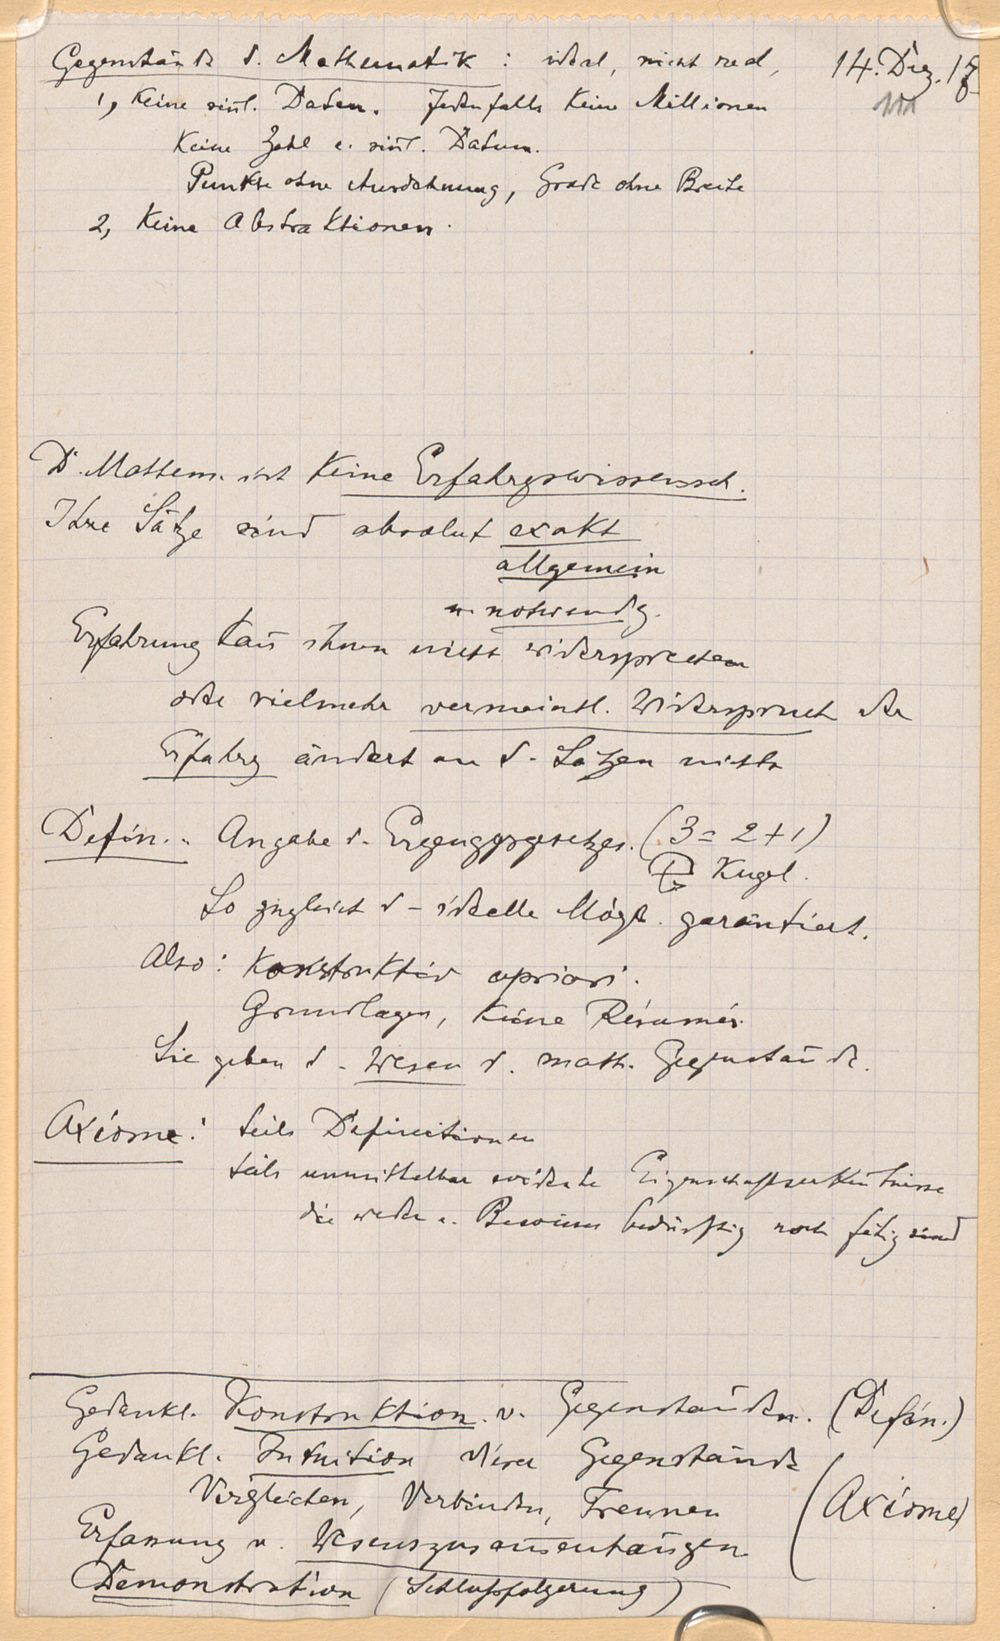 Gegenstände d. Mathematik : ideal, nicht real, 14. Dez. 17
1, Keine sinl. Daten. Jedenfalls Keine Millionen
Keine Zahl e. sinl. Datum.
Punkte ohne Ausdehnung, Grade ohne Breite
2, Keine Abstraktionen.
D. Mathem. ist Keine Erfahrgswissensch.
Ihre Sätze sind absolut exakt
allgemein
u. notwendg.
Erfahrung kan̄ ihnen nicht widersprechen
oder vielmehr vermeintl. Widerspruch der
Erfahrg ändert an d. Sätzen nichts
Defin.: Angabe d. Erzeuggsgesetzes. (3 = 2 + 1)
Kugel.
So zugleich d. ideelle Möglk. garantiert.
Also: Konstruktiv apriori.
Grundlagen, Keine Résumés
Sie geben d. Wesen d. math. Gegenstände.
Axiome: teils Definitionen
teils unmittelbar evidente Eigenschaftserken̄tnisse
die weder e. Beweises bedürftig noch fähig sind
Gedankl. Konstruktion v. Gegenständen. (Defin.)
Gedankl. Intuition dieser Gegenstände
Vergleichen, Verbinden, Trennen (Axiome)
Erfassung v. Wesenszusam̄enhängen
Demonstration (Schlußfolgerung)